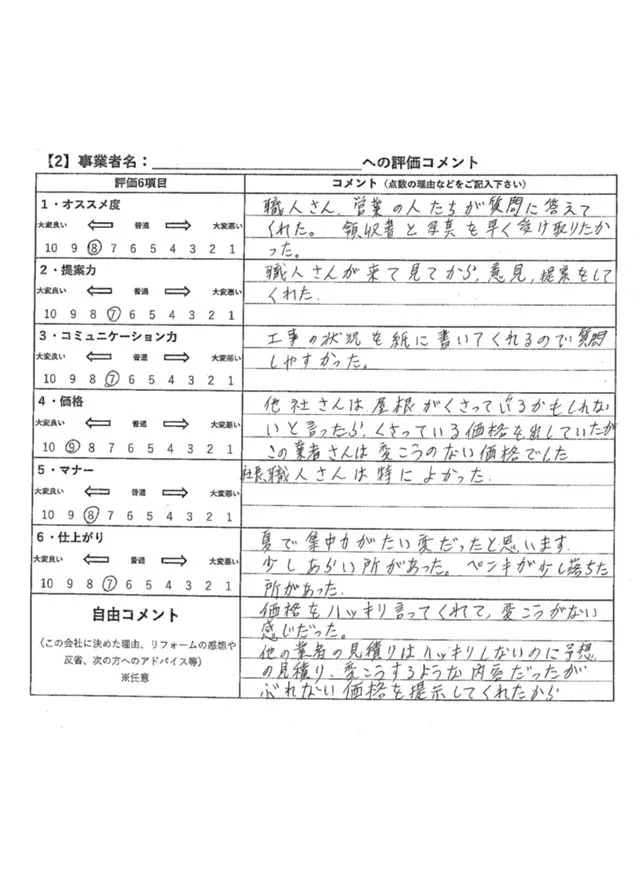 【2】事業者名：＿＿＿＿＿＿＿＿＿＿への評価コメント
評価6項目
コメント（点数の理由などをご記入下さい）
1・オススメ度
大変良い ⇐ 普通 ⇒ 大変悪い
10 9 8 7 6 5 4 3 2 1
職人さん、営業の人たちが質問に答えて
くれた。 領収書と写真を早く受け取りたか
った。
2・提案力
大変良い ⇐ 普通 ⇒ 大変悪い
10 9 8 7 6 5 4 3 2 1
職人さんが来て見てから、意見、提案をして
くれた.
3・コミュニケーション力
大変良い ⇐ 普通 ⇒ 大変悪い
10 9 8 7 6 5 4 3 2 1
工事の状況を紙に書いてくれるので質問
しやすかった。
4・価格
大変良い ⇐ 普通 ⇒ 大変悪い
10 9 8 7 6 5 4 3 2 1
他社さんは、屋根がくさっているかもしれな
いと言ったら、くさっている価格を出していたが
この業者さんは変こうのない価格でした
5・マナー
大変良い ⇐ 普通 ⇒ 大変悪い
10 9 8 7 6 5 4 3 2 1
社長、職人さんは特によかった.
6・仕上がり
大変良い ⇐ 普通 ⇒ 大変悪い
10 9 8 7 6 5 4 3 2 1
夏で集中力がたい変だったと思います.
少しあらい所があった。ペンキが少し落ちた
所があった.
自由コメント
（この会社に決めた理由、リフォームの感想や
反省、次の方へのアドバイス等）
※任意
価格をハッキリ言ってくれて、変こうがない
感じだった。
他の業者の見積りはハッキリしないのに予想
の見積り、変こうするような内容だったが
ぶれない価格を提示してくれたから